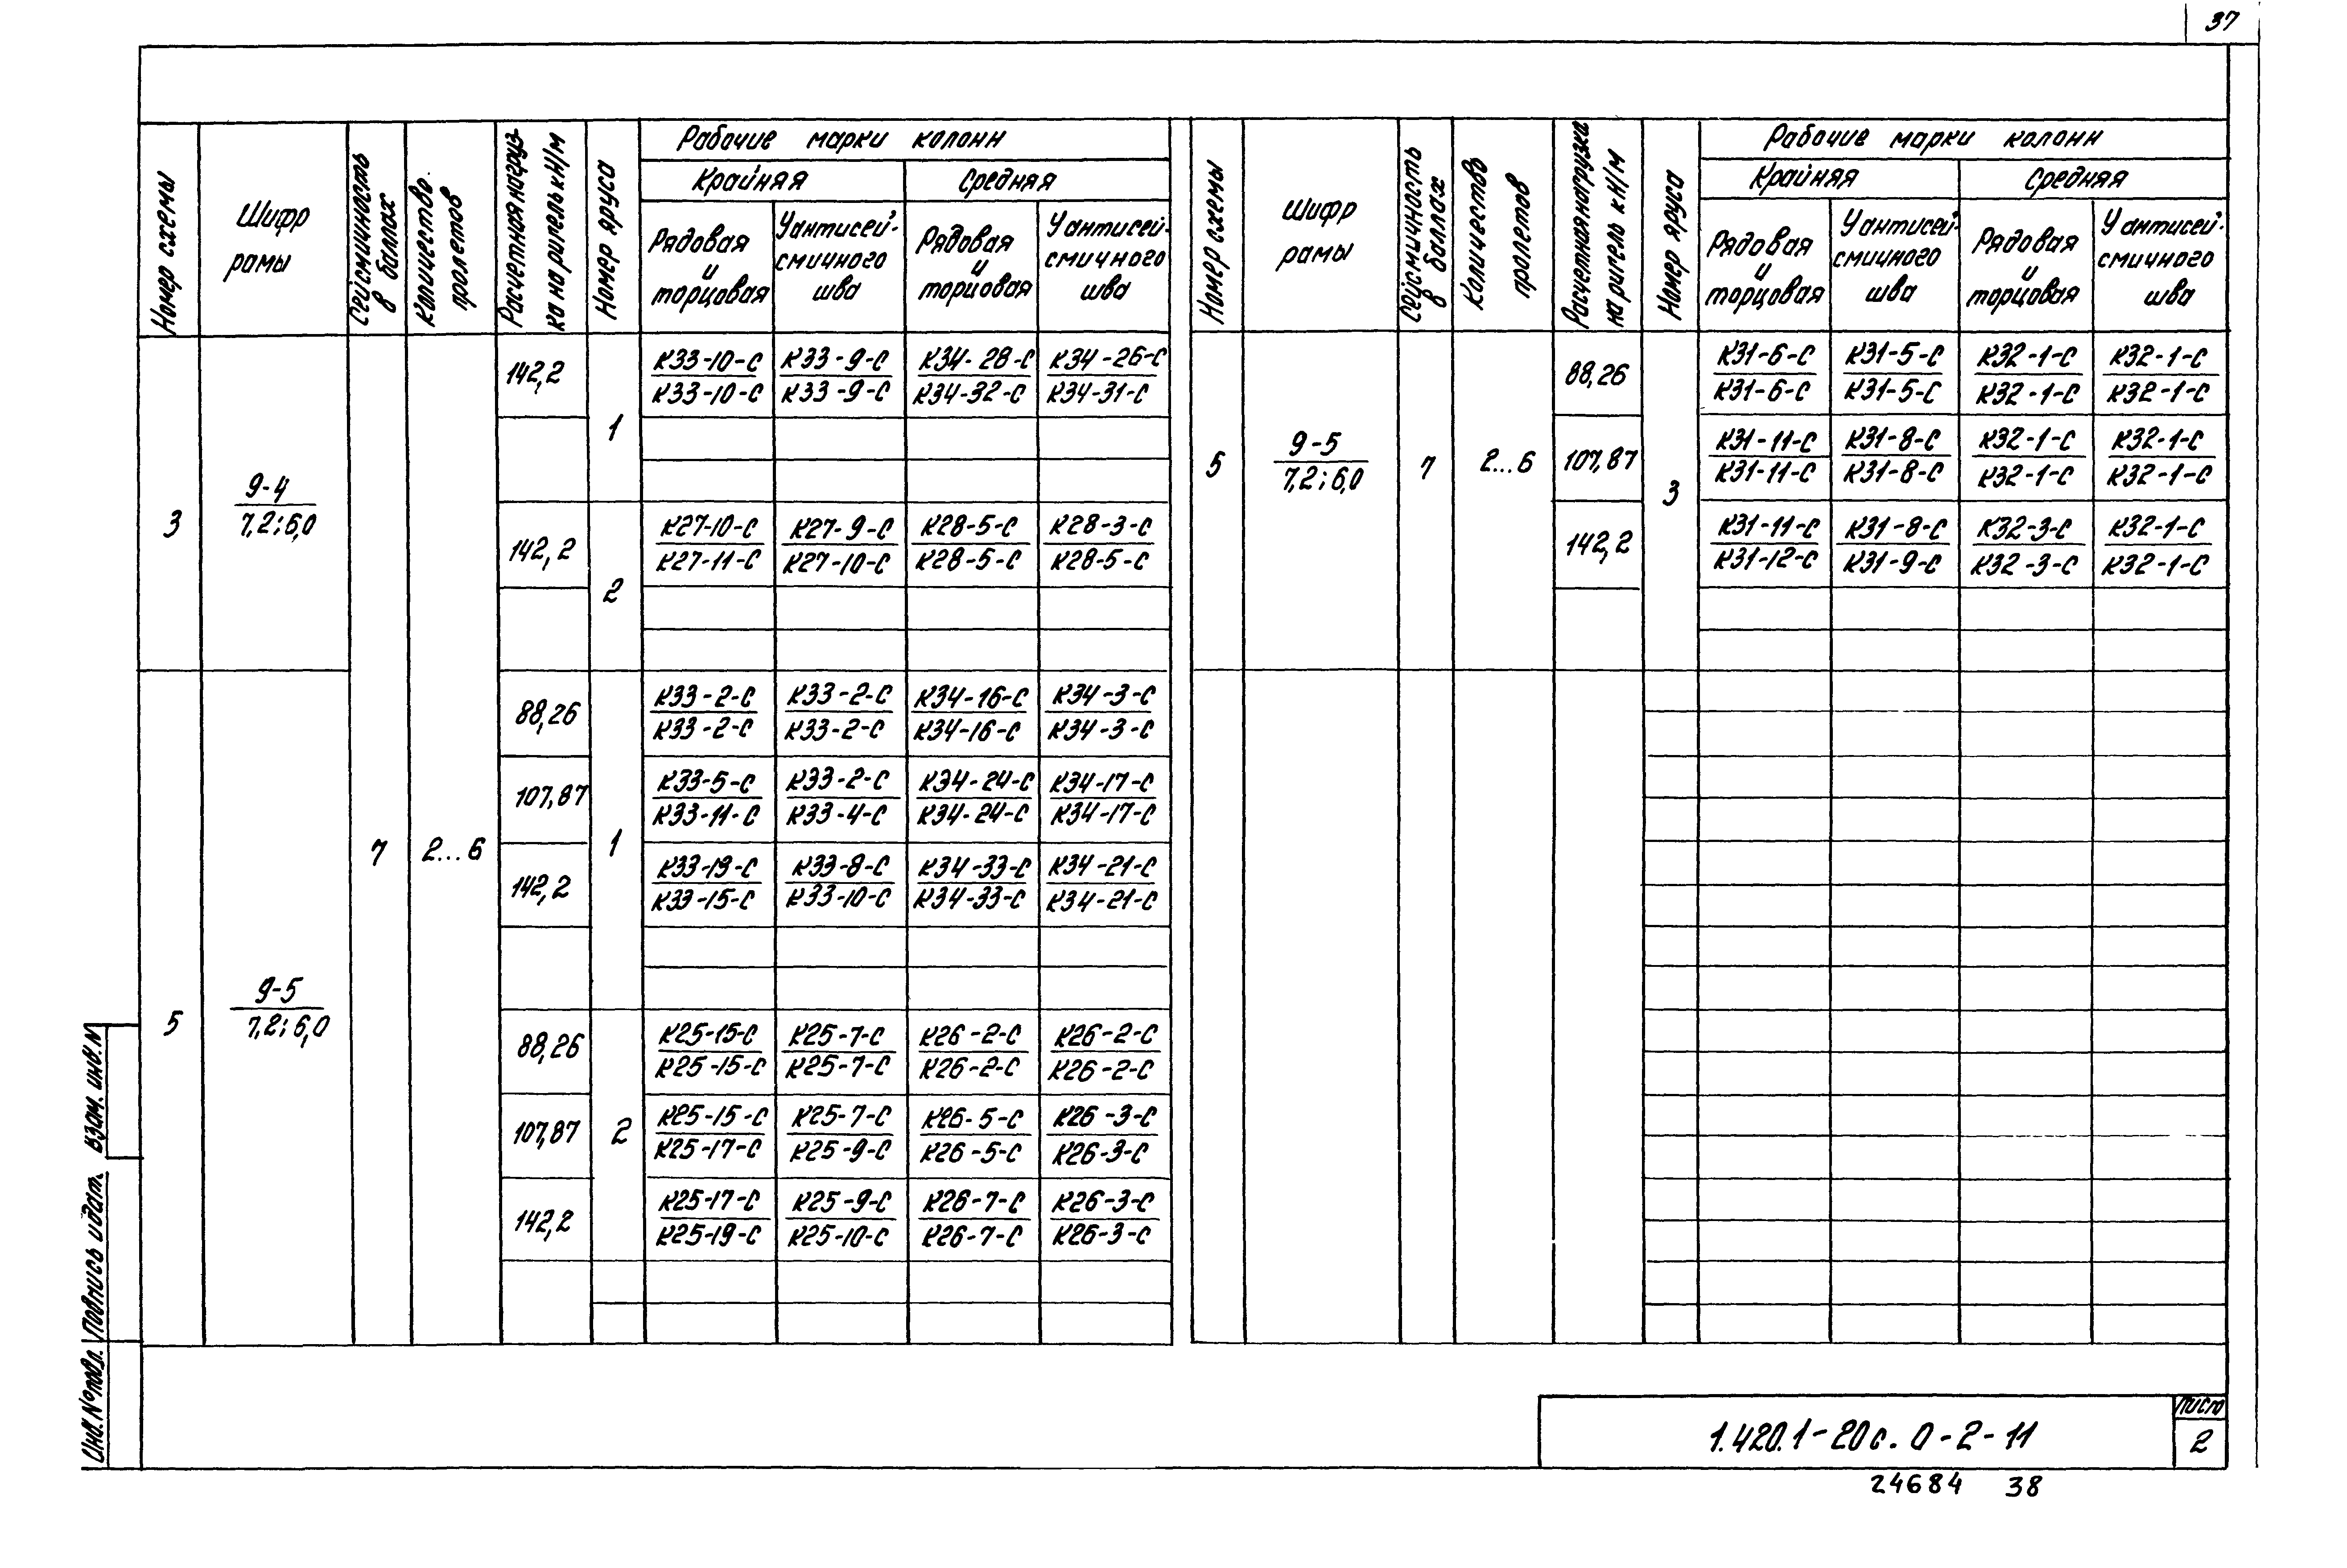 37
Номер схемы
Шифр
рамы
Сейсмичность
в баллах
Количество
пролетов
Расчетная нагруз-
ка на ригель кН/м
Номер яруса
Рабочие марки колонн
Крайняя
Средняя
Рядовая
и
торцовая
У антисей-
смичного
шва
Рядовая
и
торцовая
У антисей-
смичного
шва
3
9-4
7,2; 6,0
7
2...6
142,2
1
К33-10-С К33-9-С К34-28-С К34-26-С
К33-10-С К33-9-С К34-32-С К34-31-С
142,2
2
К27-10-С К27-9-С К28-5-С К28-3-С
К27-11-С К27-10-С К28-5-С К28-5-С
5
9-5
7,2; 6,0
88,26
К33-2-С К33-2-С К34-16-С К34-3-С
К33-2-С К33-2-С К34-16-С К34-3-С
107,87
1
К33-5-С К33-2-С К34-24-С К34-17-С
К33-11-С К33-4-С К34-24-С К34-17-С
142,2
К33-13-С К33-8-С К34-33-С К34-21-С
К33-15-С К33-10-С К34-33-С К34-21-С
88,26
К25-15-С К25-7-С К26-2-С К26-2-С
К25-15-С К25-7-С К26-2-С К26-2-С
107,87
2
К25-15-С К25-7-С К26-5-С К26-3-С
К25-17-С К25-9-С К26-5-С К26-3-С
142,2
К25-17-С К25-9-С К26-7-С К26-3-С
К25-19-С К25-10-С К26-7-С К26-3-С
Номер схемы
Шифр
рамы
Сейсмичность
в баллах
Количество
пролетов
Расчетная нагрузка
на ригель кН/м
Номер яруса
Рабочие марки колонн
Крайняя
Средняя
Рядовая
и
торцовая
У антисей-
смичного
шва
Рядовая
и
торцовая
У антисей-
смичного
шва
5
9-5
7,2; 6,0
7
2...6
88,26
К31-6-С К31-5-С К32-1-С К32-1-С
К31-6-С К31-5-С К32-1-С К32-1-С
107,87
3
К31-11-С К31-8-С К32-1-С К32-1-С
К31-11-С К31-8-С К32-1-С К32-1-С
142,2
К31-11-С К31-8-С К32-3-С К32-1-С
К31-12-С К31-9-С К32-3-С К32-1-С
Взам. инв. N
Подпись и дат.
Инв. № подл.
1.420.1-20с. 0-2-11
Лист
2
24684 38